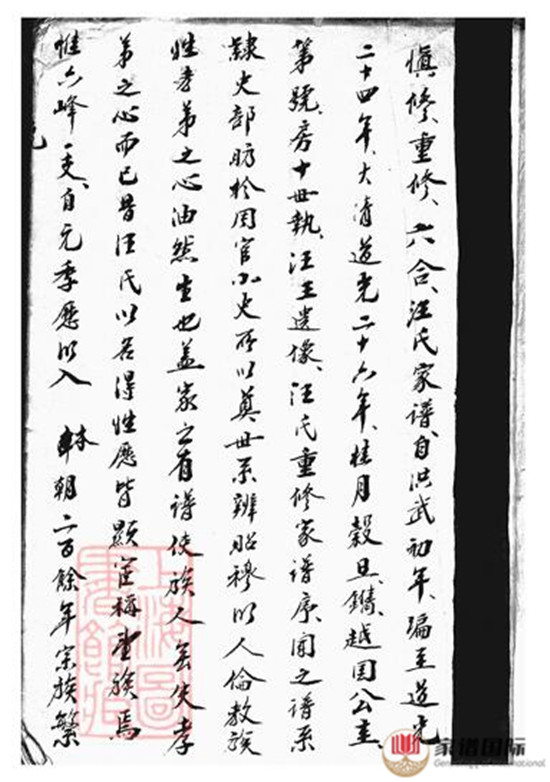 慎修、重修、六合、汪氏家谱、自洪武初年、编至道光
二十四年、大清道光二十六年、桂月穀旦、鐫、越国公主、
第號、房十世執、汪王遗像、汪氏重修家谱序、闻之谱系
隸史部昉於周官小史所以奠世系辨昭穆以人倫教族
姓孝弟之心油然生也盖家之有谱使族人無失孝
弟之心而已昔汪氏以名得姓歷皆顯宦稱望族焉
惟六峰一支、自元季歷以入 本朝二百餘年宗族繁
上海圖書館藏
家谱国际
Genealogy International